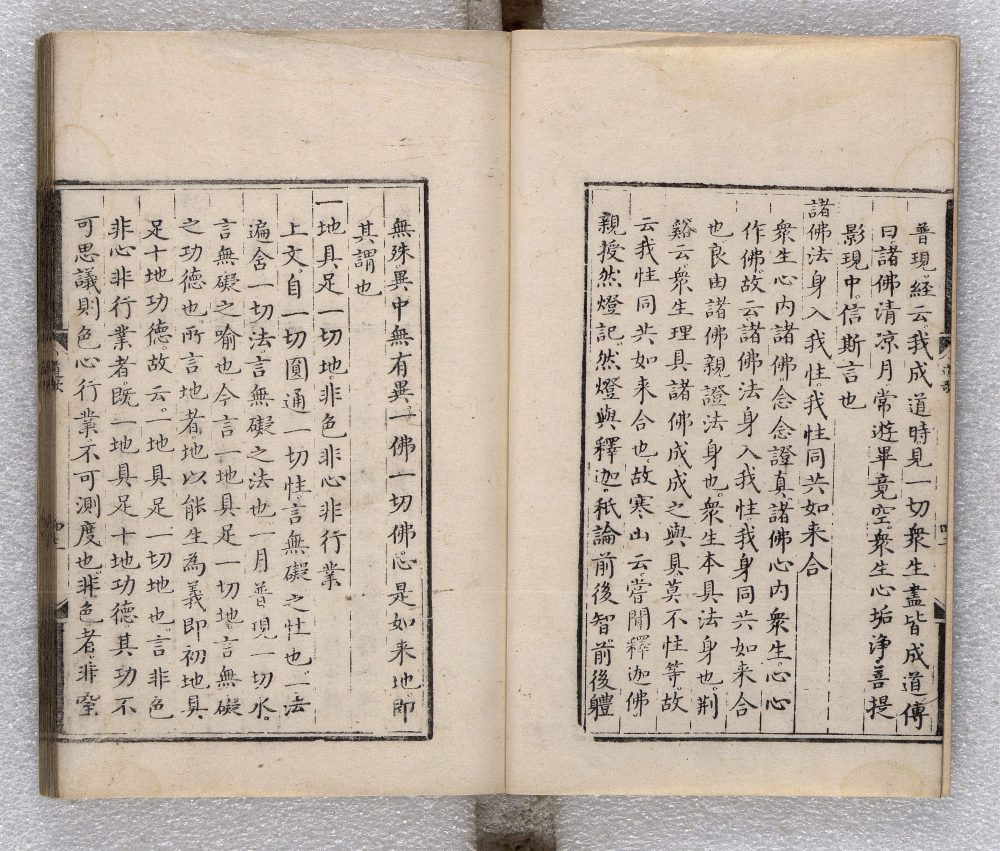 普現經云我成道時見一切衆生盡皆成道傳
曰諸佛清凉月常遊畢竟空衆生心垢淨菩提
影現中信斯言也
諸佛法身入我性我性同共如来合
衆生心內諸佛念念證真諸佛心內衆生心心
作佛故云諸佛法身入我性我身同共如来合
也良由諸佛親證法身也衆生本具法身也荆
谿云衆生理具諸佛成成之與具莫不性等故
云我性同共如来合也故寒山云嘗聞釋迦佛
親授然燈記然燈與釋迦秖論前後智前後軆
無殊異中無有異一佛一切佛心是如来地即
其謂也
一地具足一切地非色非心非行業
上文自一切圓通一切性言無礙之性也一法
遍含一切法言無礙之法也一月普現一切水
言無礙之喻也今言一地具足一切地言無礙
之功德也所言地者地以能生為義即初地具
足十地功德故云一地具足一切地也言非色
非心非行業者既一地具足十地功德其功不
可思議則色心行業不可測度也非色者非窒